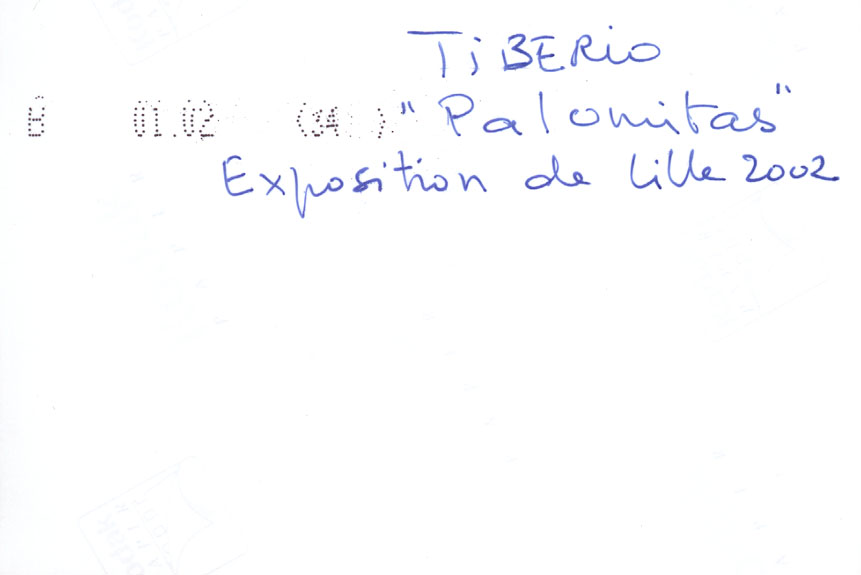 TiBERiO
01.02 (34 ) "Palomitas"
Exposition de Lille 2002